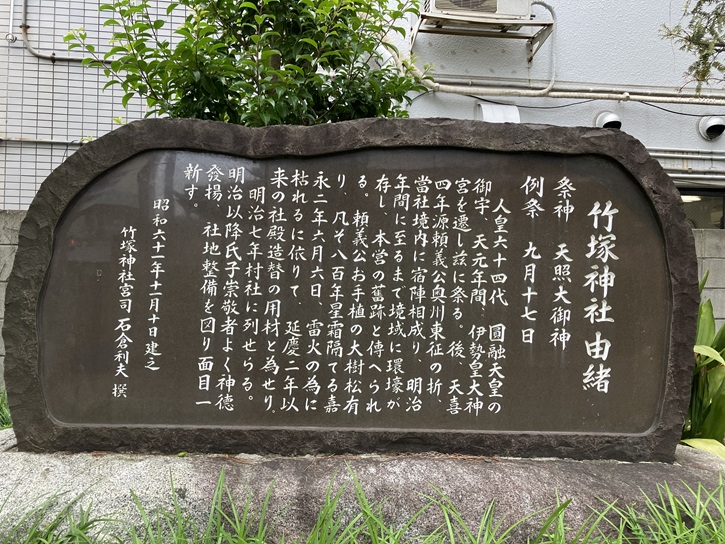 竹塚神社由緒
祭神　天照大御神
例祭　九月十七日
人皇六十四代　圓融天皇の
御宇、天元年間、伊勢皇大神
宮を遷し玆に祭る。後、天喜
四年源頼義公奥州東征の折、
當社境内に宿陣相成り、明治
年間に至るまで境域に環壕が
存し、本営の舊跡と傳へられ
る。頼義公お手植の大樹松有
り、凡そ八百年星霜隔てる嘉
永二年六月六日、雷火の為に
枯れるに依りて、延慶二年以
来の社殿造替の用材と為せり。
明治七年村社に列せらる。
明治以降氏子崇敬者よく神徳
發揚、社地整備を図り面目一
新す。
昭和六十一年十一月十日建之
竹塚神社宮司　石倉利夫　撰